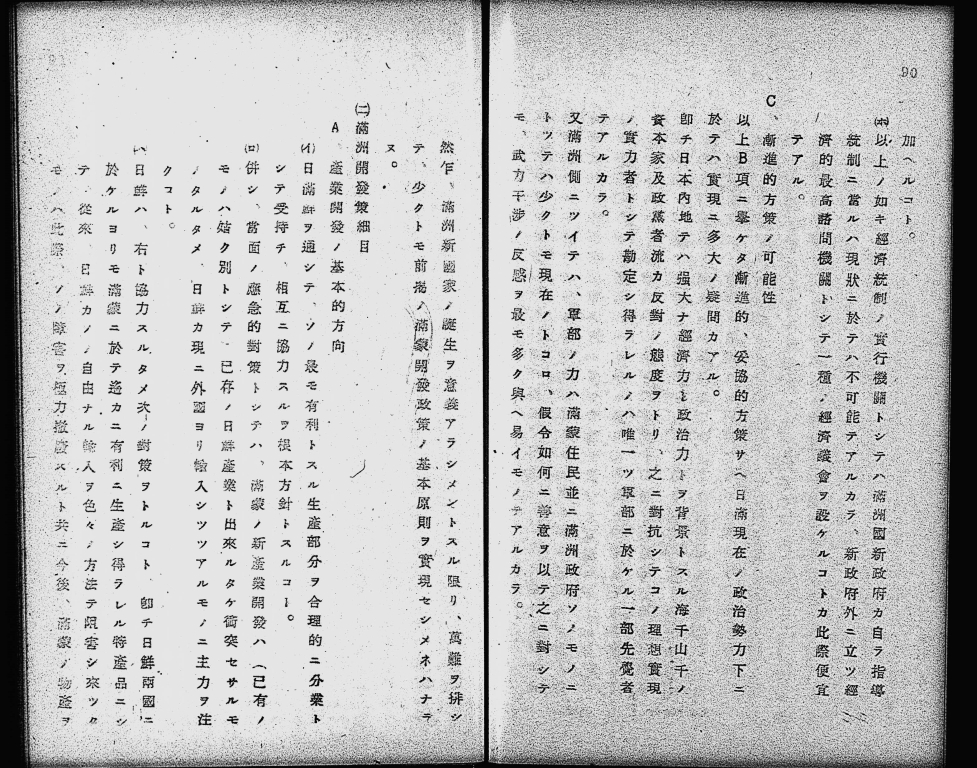 90
加ヘルコト。
㈭以上ノ如キ經濟統制ノ實行機關トシテハ滿洲國新政府カ自ラ指導
統制ニ當ルハ現狀ニ於テハ不可能テアルカラ、新政府外ニ立ツ經
濟的最高諮問機關トシテ一種ノ經濟議會ヲ設ケルコトカ此際便宜
テアル。
C、漸進的方策ノ可能性
以上B項ニ擧ケタ漸進的、妥協的方策サヘ日滿現在ノ政治勢力下ニ
於テハ實現ニ多大ノ疑問カアル。
卽チ日本內地テハ强大ナ經濟力ト政治力トヲ背景トスル海千山千ノ
資本家及政黨者流カ反對ノ態度ヲトリ、之ニ對抗シテコノ理想實現
ノ實力者トシテ勘定シ得ラレルノハ唯一ツ軍部ニ於ケル一部先覺者
テアルカラ。
又滿洲側ニツイテハ、軍部ノ力ハ滿蒙住民並ニ滿洲政府ソノモノニ
トツテハ少クトモ現在ノトコロ、假令如何ニ善意ヲ以テ之ニ對シテ
モ、武力干涉ノ反感ヲ最モ多ク與ヘ易イモノテアルカラ。
91
然乍、滿洲新國家ノ誕生ヲ意義アラシメントスル限リ、萬難ヲ排シ
テ、少クトモ前揭ノ滿蒙開發政策ノ基本原則ヲ實現セシメネハナラ
ヌ。
㈡滿洲開發策細目
A、產業開發ノ基本的方向
㈑日滿鮮ヲ通シテ、ソノ最モ有利トスル生產部分ヲ合理的ニ分業ト
シテ受持チ、相互ニ協力スルヲ根本方針トスルコト。
㈺併シ、當面ノ應急的對策トシテハ、滿蒙ノ新產業開發ハ(已有ノ
モノハ姑ク別トシテ)已存ノ日鮮產業ト出來ルタケ衝突セサルモ
ノタルタメ、日鮮カ現ニ外國ヨリ輸入シツツアルモノニ主力ヲ注
クコト。
㈩日鮮ハ、右ト協力スルタメ次ノ對策ヲトルコト、卽チ日鮮兩國ニ
於ケルヨリモ滿蒙ニ於テ遙カニ有利ニ生產シ得ラレル特產品ニシ
テ、從來、日鮮カソノ自由ナル輸入ヲ色々ノ方法テ阻害シ來ツタ
モノハ此際、ソノ障害ヲ極力撤廢スルト共ニ今後、滿蒙ノ物產ヲ